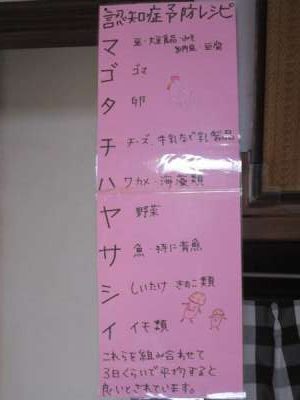 認知症予防レシピ
マ 豆・大豆食品・みそ
納豆 豆腐
ゴ ゴマ
タ 卵
チ チーズ 牛乳など乳製品
ハ ワカメ・海藻類
ヤ 野菜
サ 魚・特に青魚
シ しいたけ きのこ類
イ イモ類
これらを組み合わせて
3日くらいで平均すると
良いとされています。